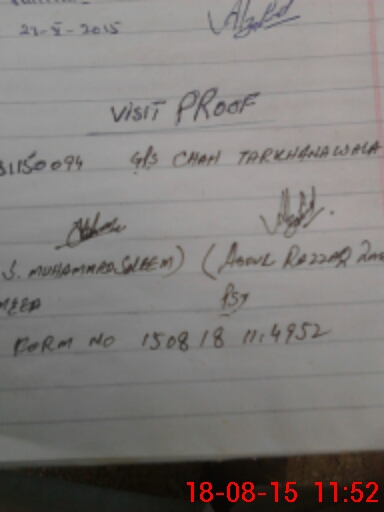 21-V-2015
VISIT PROOF
31150094 G/S CHAH TARKHANAWALA
S. MUHAMMAD SALEEM) (ABDUL RAZZAQ
PST
FORM NO 150818 11.4952
18-08-15 11:52